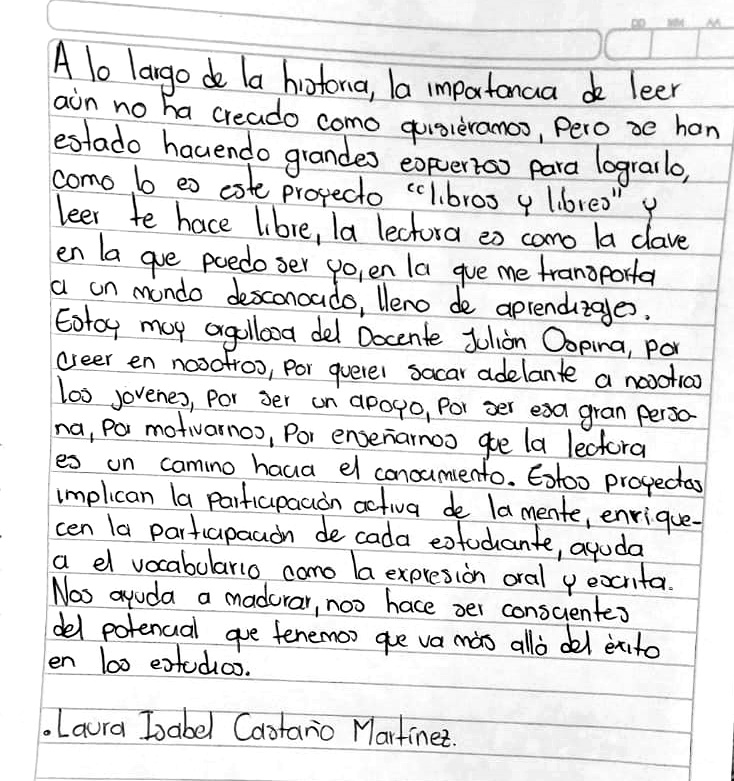 DD MM AA
A lo largo de la historia, la importancia de leer
aún no ha crecido como quisiéramos, Pero se han
estado haciendo grandes esfuerzos para lograrlo,
como lo es este proyecto "libros y libres" y
leer te hace libre, la lectura es como la clave
en la que puedo ser yo, en la que me transporta
a un mundo desconocido, lleno de aprendizajes.
Estoy muy orgullosa del Docente Julián Ospina, por
creer en nosotros, por querer sacar adelante a nosotros
los jovenes, por ser un apoyo, por ser esa gran perso-
na, por motivarnos, por enseñarnos que la lectura
es un camino hacia el conocimiento. Estos proyectos
implican la participación activa de la mente, enrique-
cen la participación de cada estudiante, ayuda
a el vocabulario como la expresión oral y escrita.
Nos ayuda a madurar, nos hace ser conscientes
del potencial que tenemos que va más allá del éxito
en los estudios.
.Laura Isabel Castaño Martínez.